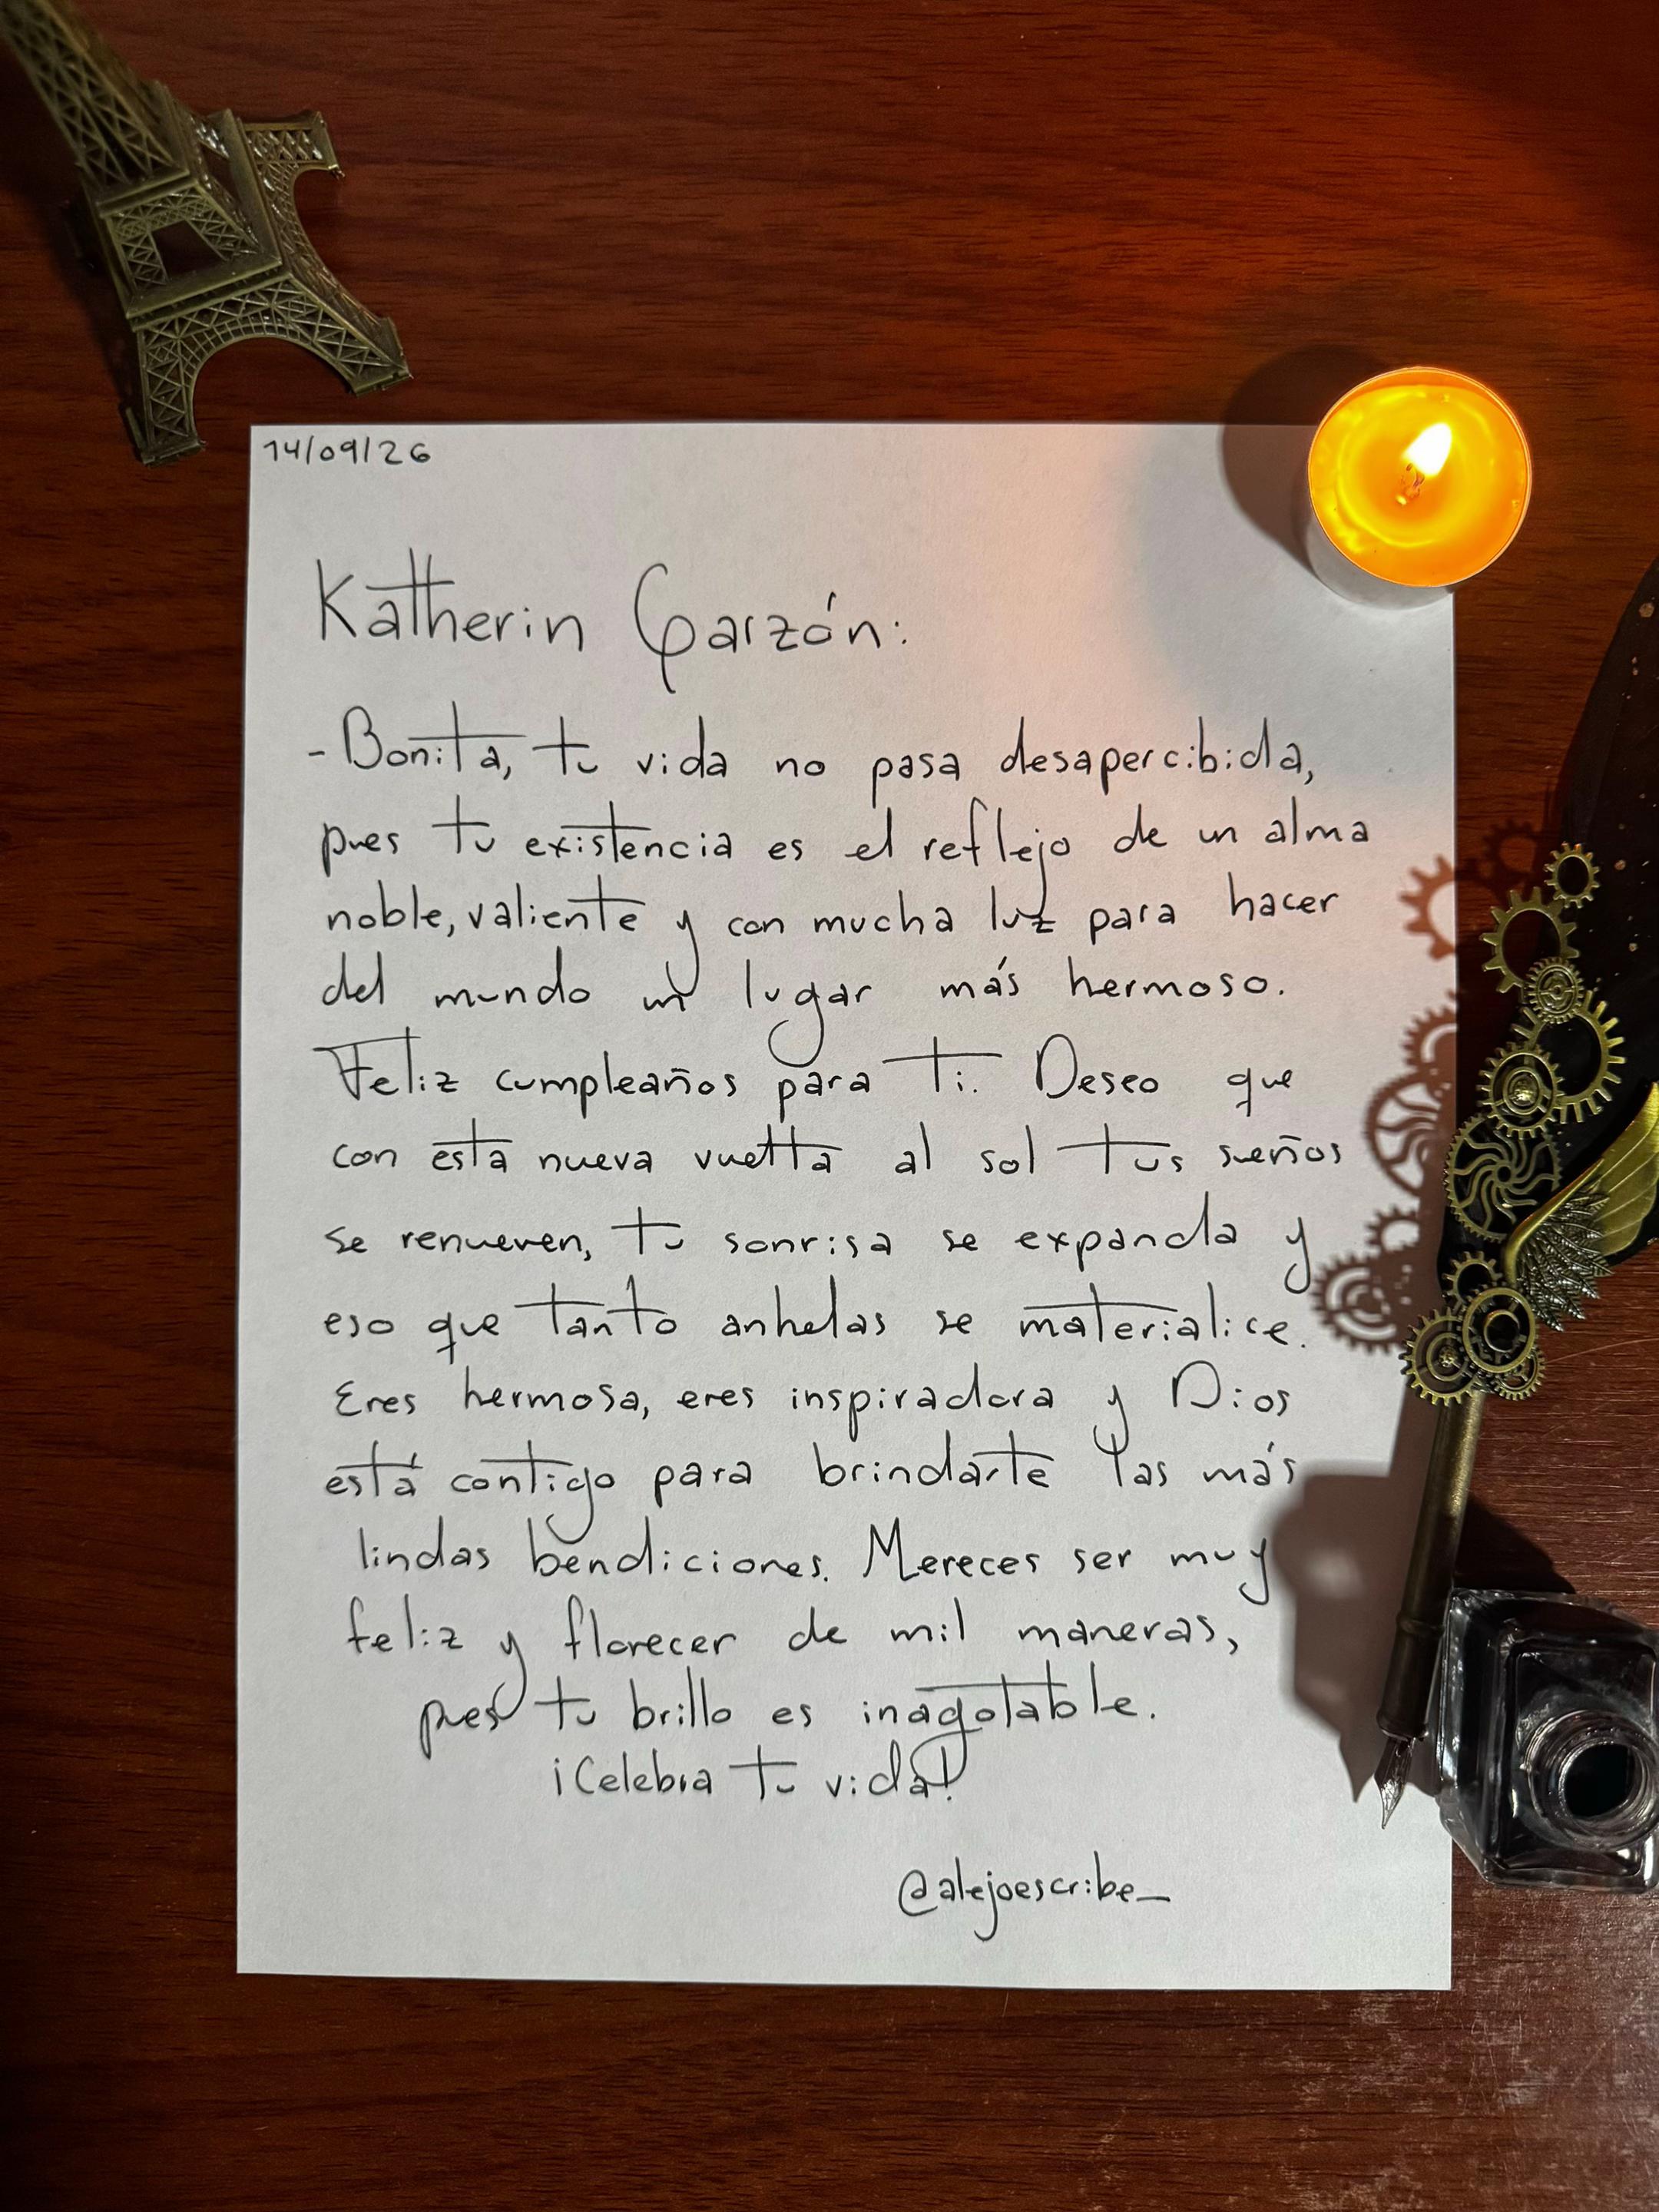 14/09/26
Katherin Garzón:
-Bonita, tu vida no pasa desapercibida,
pues tu existencia es el reflejo de un alma
noble, valiente y con mucha luz para hacer
del mundo un lugar más hermoso.
Feliz cumpleaños para ti. Deseo que
con esta nueva vuelta al sol tus sueños
se renueven, tu sonrisa se expanda y
eso que tanto anhelas se materialice.
Eres hermosa, eres inspiradora y Dios
está contigo para brindarte las más
lindas bendiciones. Mereces ser muy
feliz y florecer de mil maneras,
pues tu brillo es inagotable.
¡Celebra tu vida!
@alejoescribe_